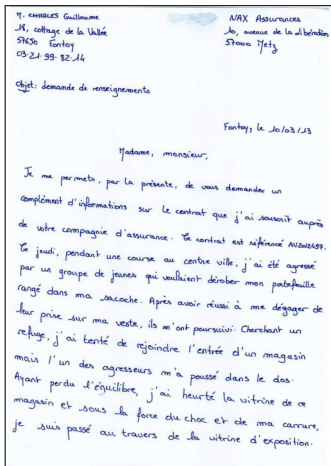 M. CHARLES Guillaume
18, cottage de la Vallée
57650 Fontoy
03.21.99.82.14
NAX Assurances
10, avenue de la Libération
57000 Metz
Objet: demande de renseignements
Fontoy, le 10/03/13
Madame, monsieur,
Je me permets, par la présente, de vous demander un
complément d'informations sur le contrat que j'ai souscrit auprès
de votre compagnie d'assurance. Ce contrat est référencé AVZ012657.
Ce jeudi, pendant une course au centre ville, j'ai été agressé
par un groupe de jeunes qui voulaient dérober mon portefeuille
rangé dans ma sacoche. Après avoir réussi à me dégager de
leur prise sur ma veste, ils m'ont poursuivi. Cherchant un
refuge, j'ai tenté de rejoindre l'entrée d'un magasin
mais l'un des agresseurs m'a poussé dans le dos.
Ayant perdu l'équilibre, j'ai heurté la vitrine de ce
magasin et sous la force du choc et de ma carrure,
je suis passé au travers de la vitrine d'exposition.